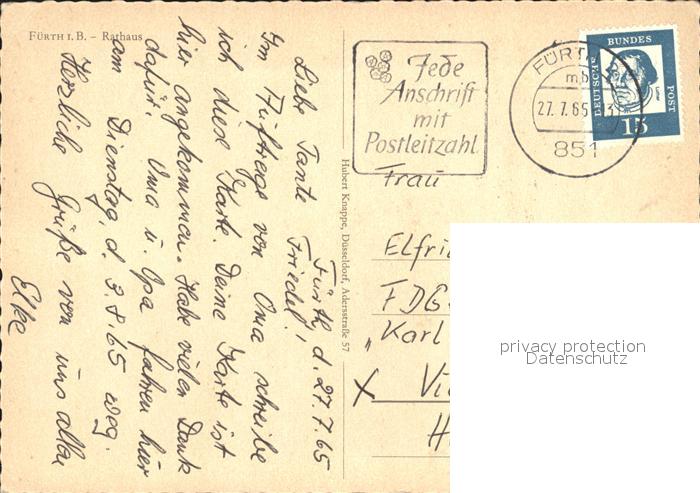 FÜRTH I. B. – Rathaus
Fürth, d. 27.7.65
Liebe Tante Friedel!
Im Auftrage von Oma schreibe
ich diese Karte. Deine Karte ist
hier angekommen. Habe vielen Dank
dafür. Oma u. Opa fahren hier
am Dienstag, d. 3.8.65 weg.
Herzliche Grüße von uns allen
Elke
Hubert Knappe, Düsseldorf, Adersstraße 57
Jede
Anschrift
mit
Postleitzahl
FÜRTH
27.7.65
851
DEUTSCHE
BUNDES
POST
15
Frau
Elfri
FDG
"Karl
X Vi
H
privacy protection
Datenschutz